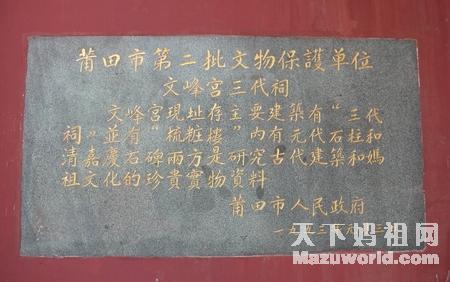 莆田市第二批文物保護单位
文峰宫三代祠
文峰宫現址存主要建築有“三代
祠”並有“梳粧樓”内有元代石柱和
清嘉慶石碑兩方是研究古代建築和媽
祖文化的珍貴實物資料
莆田市人民政府
天下妈祖网
Mazuworld.com